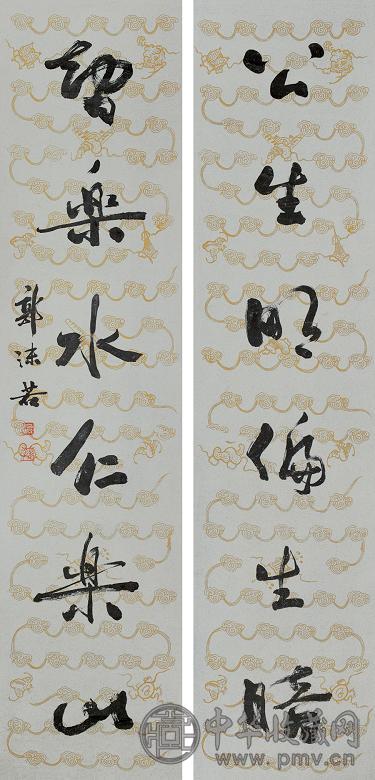 公生明偏生暗
智楽水仁楽山
郭沫若
中华收藏网
www.pmv.cn